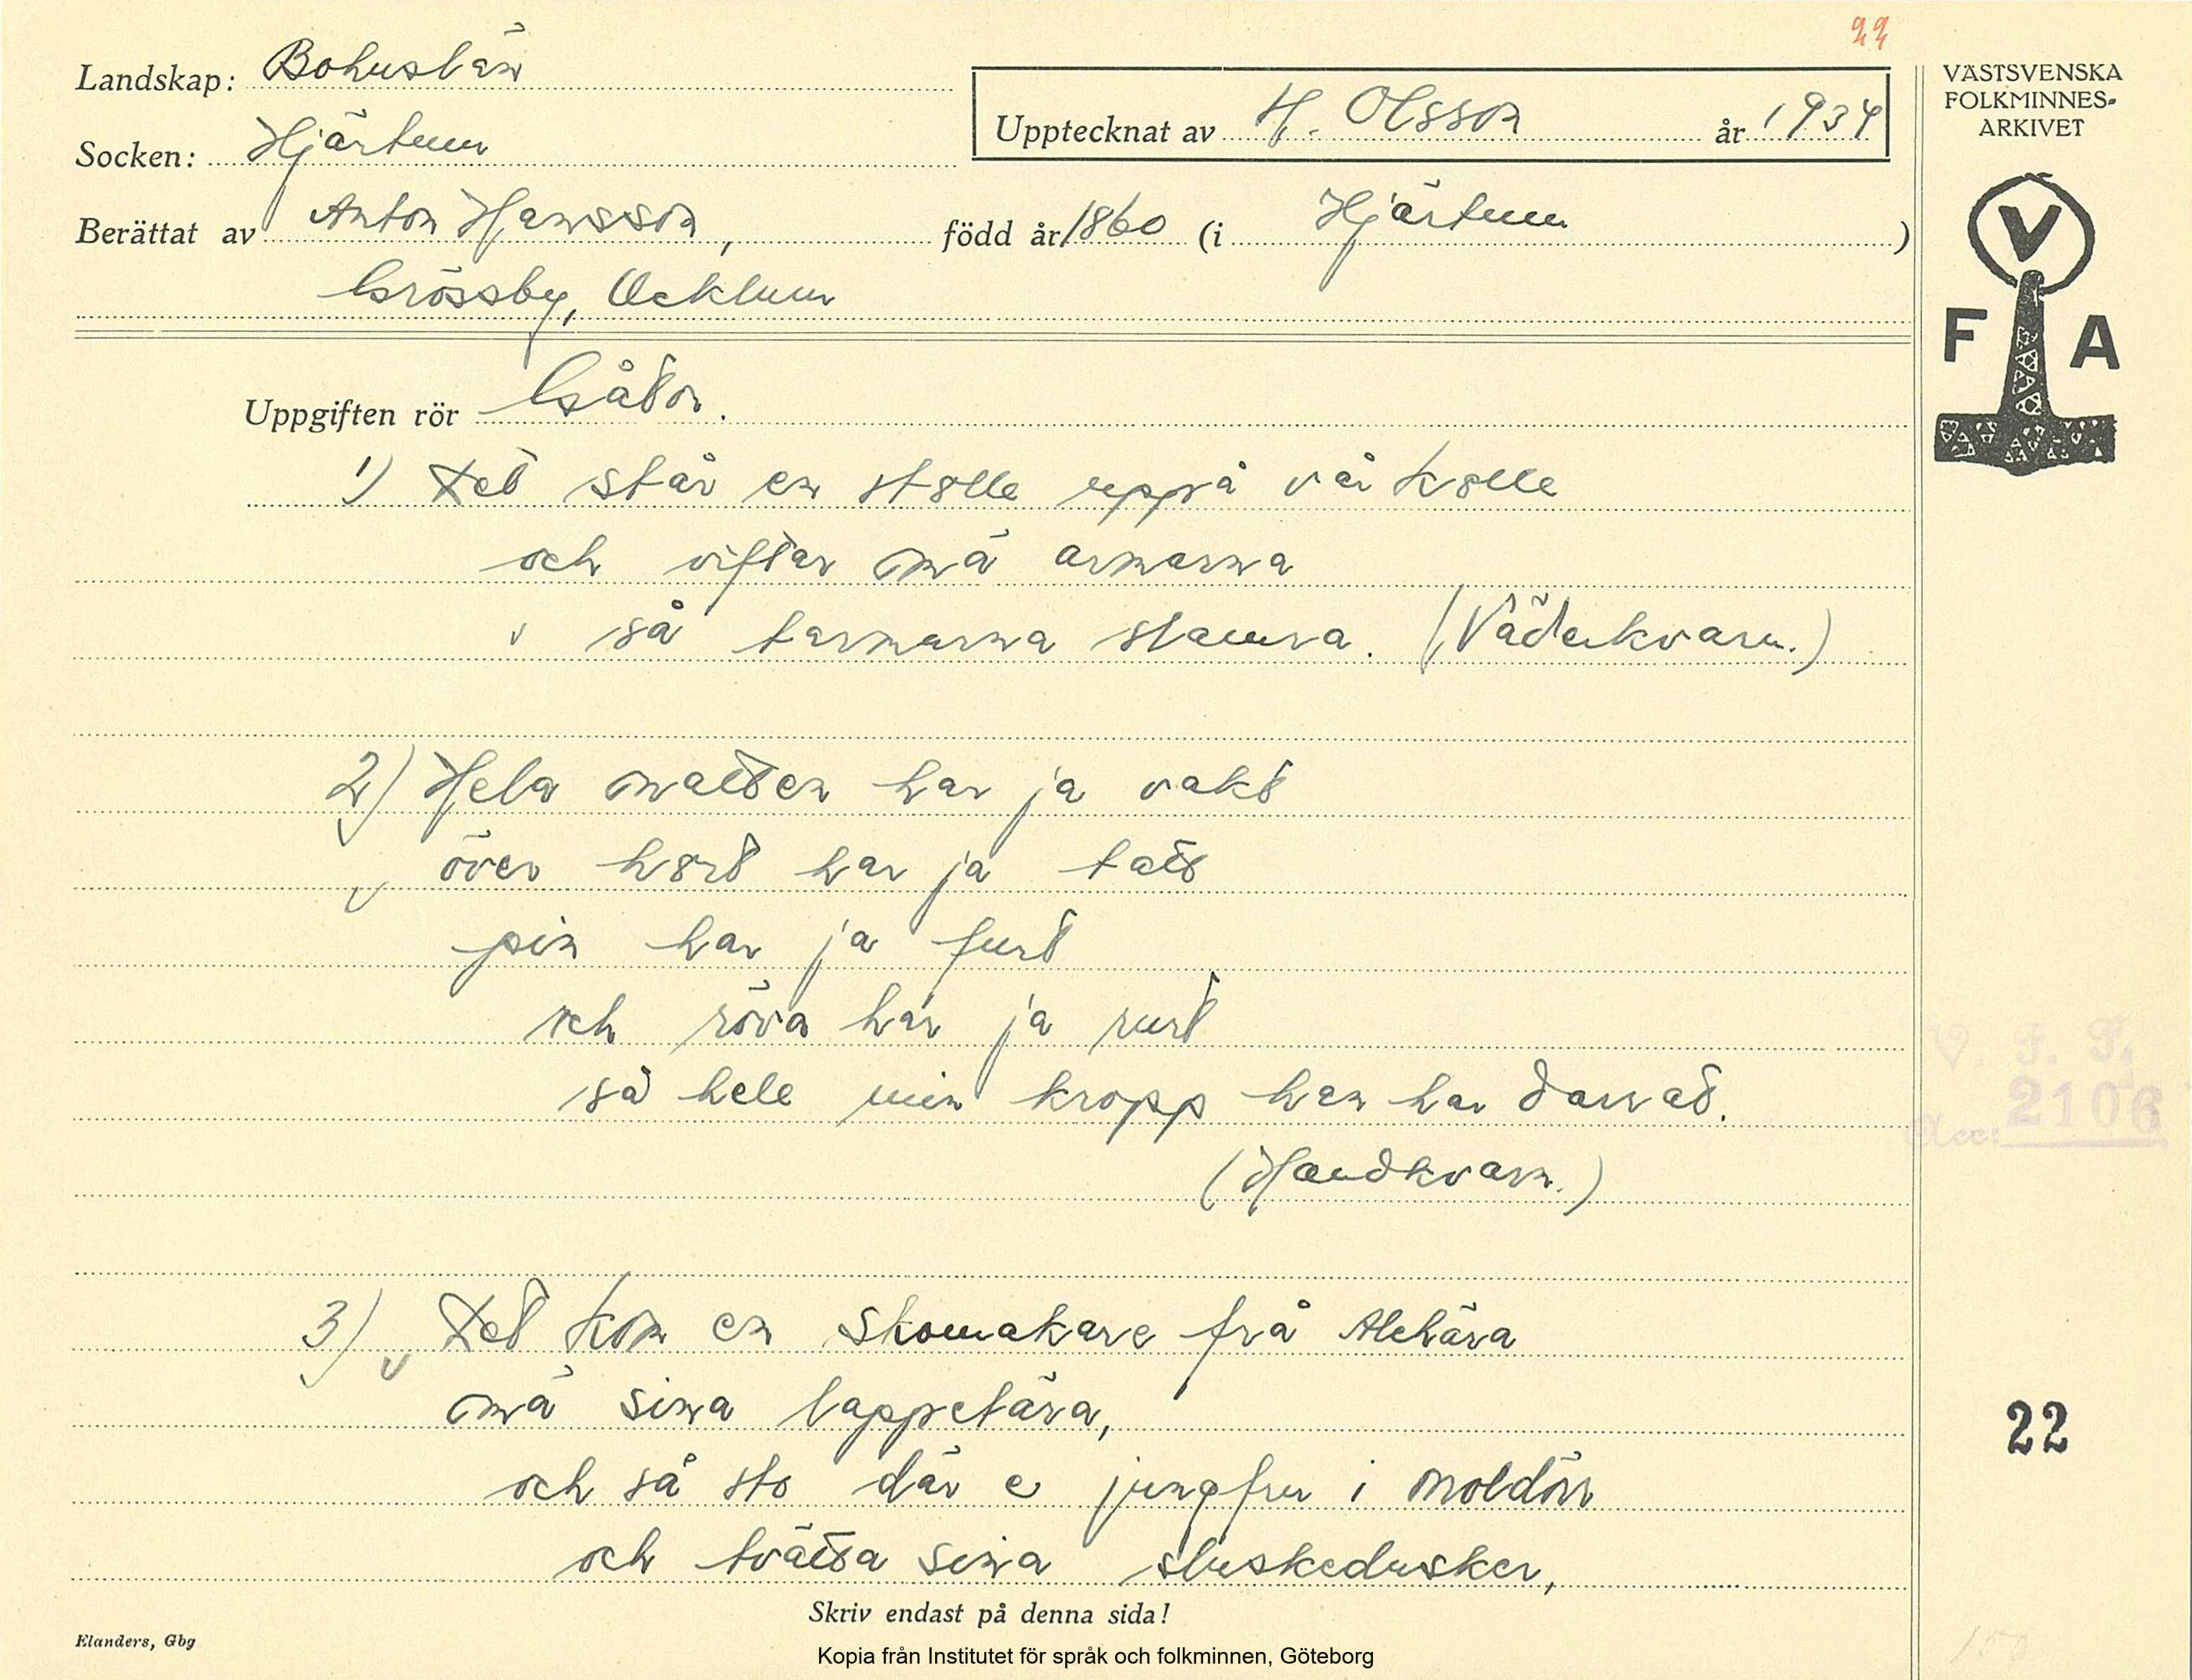 22
Landskap: Bohuslän
VÄSTSVENSKA
FOLKMINNES-
ARKIVET
Upptecknat av H. Olsson år 1934
Socken: Hjärtum
Berättat av Anton Hansson, född år 1860 (i Hjärtum)
Grössby, Ucklum
V
F A
Uppgiften rör Gåtor.
1) Det står en stolle uppå vår kolle
och viftar mä armarna
v så tarmarna slamra. (Väderkvarn.)
2) Hela natten har ja vakt
över hort har ja tatt
pin har ja furt
och röva har ja rurt
så hele min kropp hen har darrat.
(Handkvarn.)
V. F. F.
Acc: 2106
3) v Det kom en skomakare frå Alehära
mä sina lappetära,
22
och så sto där e jungfru i moldörr
och tvätta sina sluskedusker,
Skriv endast på denna sida!
Elanders, Gbg
Kopia från Institutet för språk och folkminnen, Göteborg